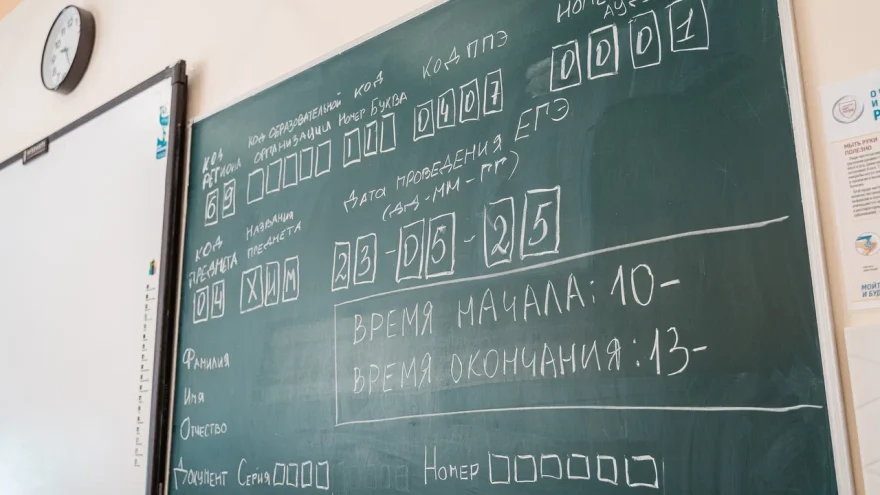 КОД РЕГИОНА
63
КОД ОБРАЗОВАТЕЛЬНОЙ ОРГАНИЗАЦИИ
КОД
НОМЕР БУКВА
11
КОД ППЭ
0407
0001
КОД ПРЕДМЕТА
04
НАЗВАНИЯ ПРЕДМЕТА
ХИМ
ДАТА ПРОВЕДЕНИЯ ЕГЭ
(ДД-ММ-ГГ)
23-05-25
ВРЕМЯ НАЧАЛА: 10-
ВРЕМЯ ОКОНЧАНИЯ: 13-
ФАМИЛИЯ
ИМЯ
ОТЧЕСТВО
ДОКУМЕНТ СЕРИЯ НОМЕР
МЫТЬ РУКИ
ПОЛЕЗНО